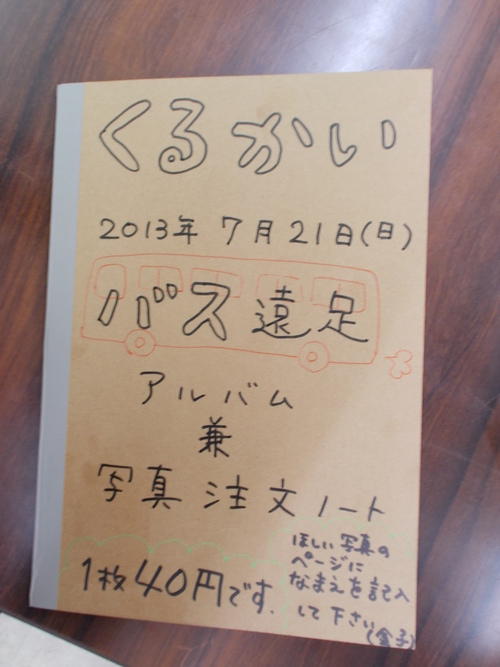 くるかい
2013年 7月21日(日)
バス遠足
アルバム
兼
写真注文ノート
1枚40円です.
ほしい写真の
ページに
なまえを記入
して下さい
(金子)